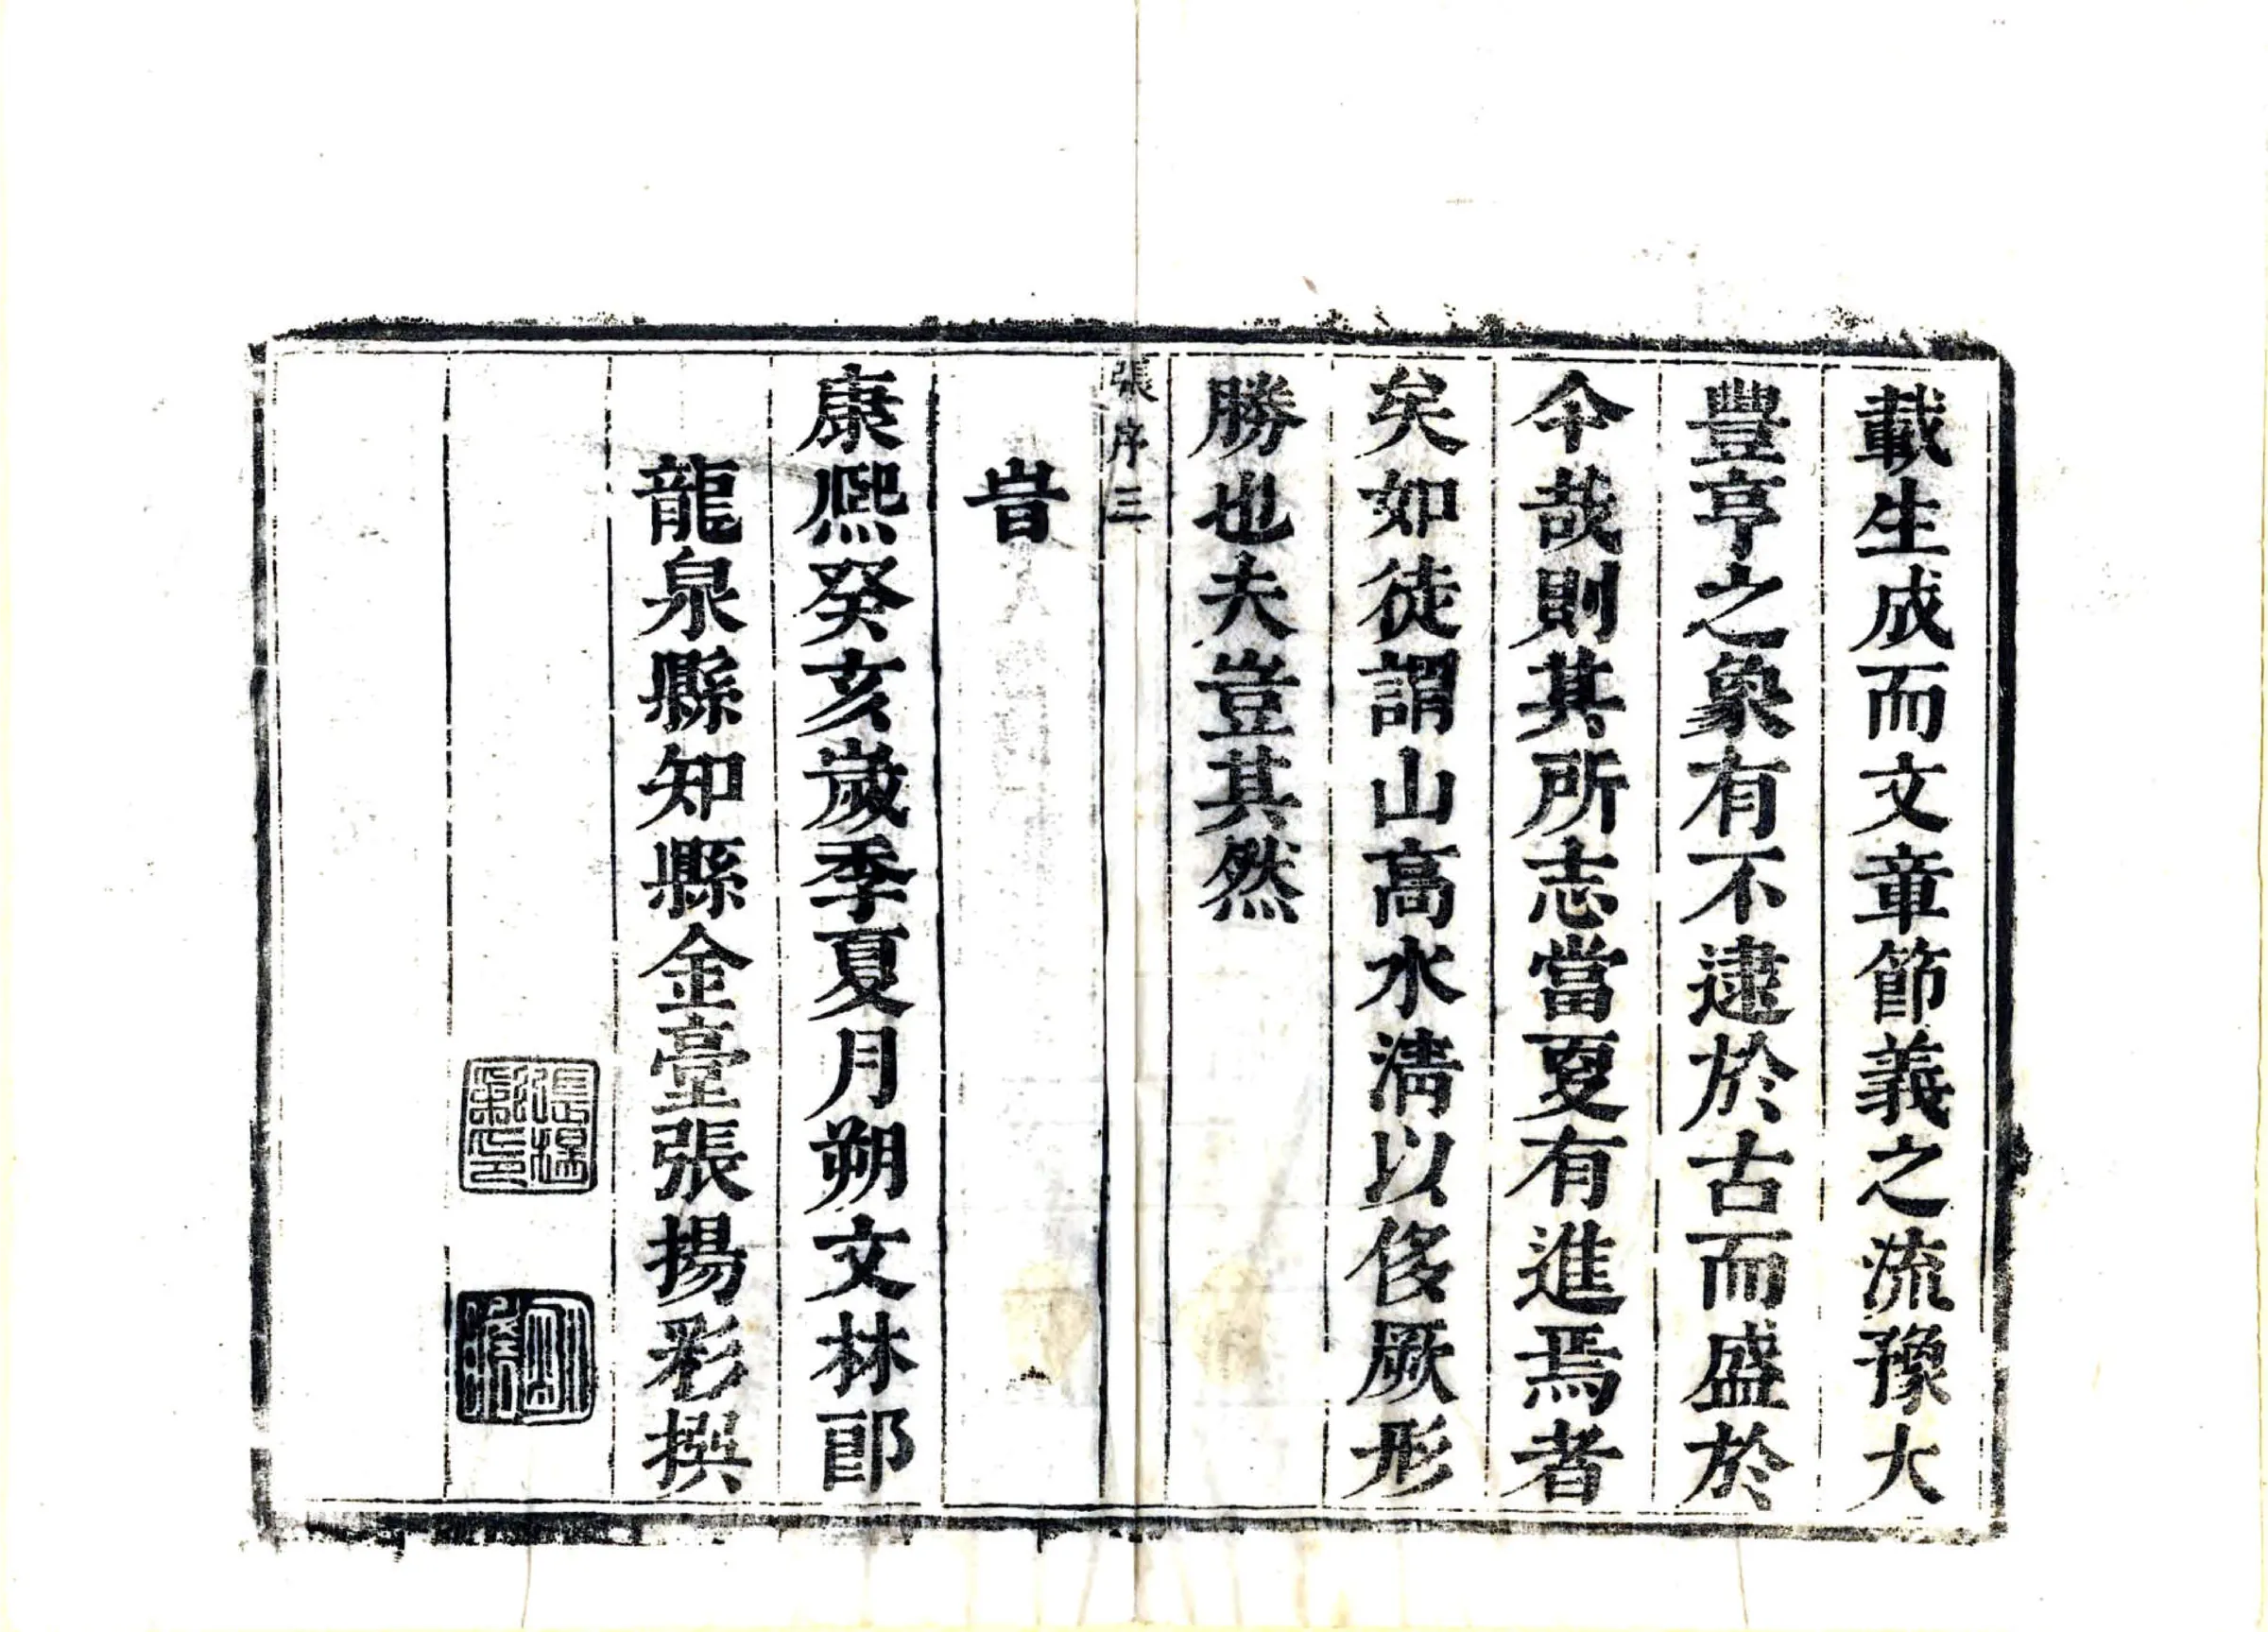 載生成而文章節義之流豫大
豐亨之象有不逮於古而盛於
今哉則其所志當夏有進焉者
矣如徒謂山高水清以侈厥形
勝也夫豈其然
張序 三
旹
康熙癸亥歲季夏月朔文林郎
龍泉縣知縣金臺張揚彩撰
張揚彩印